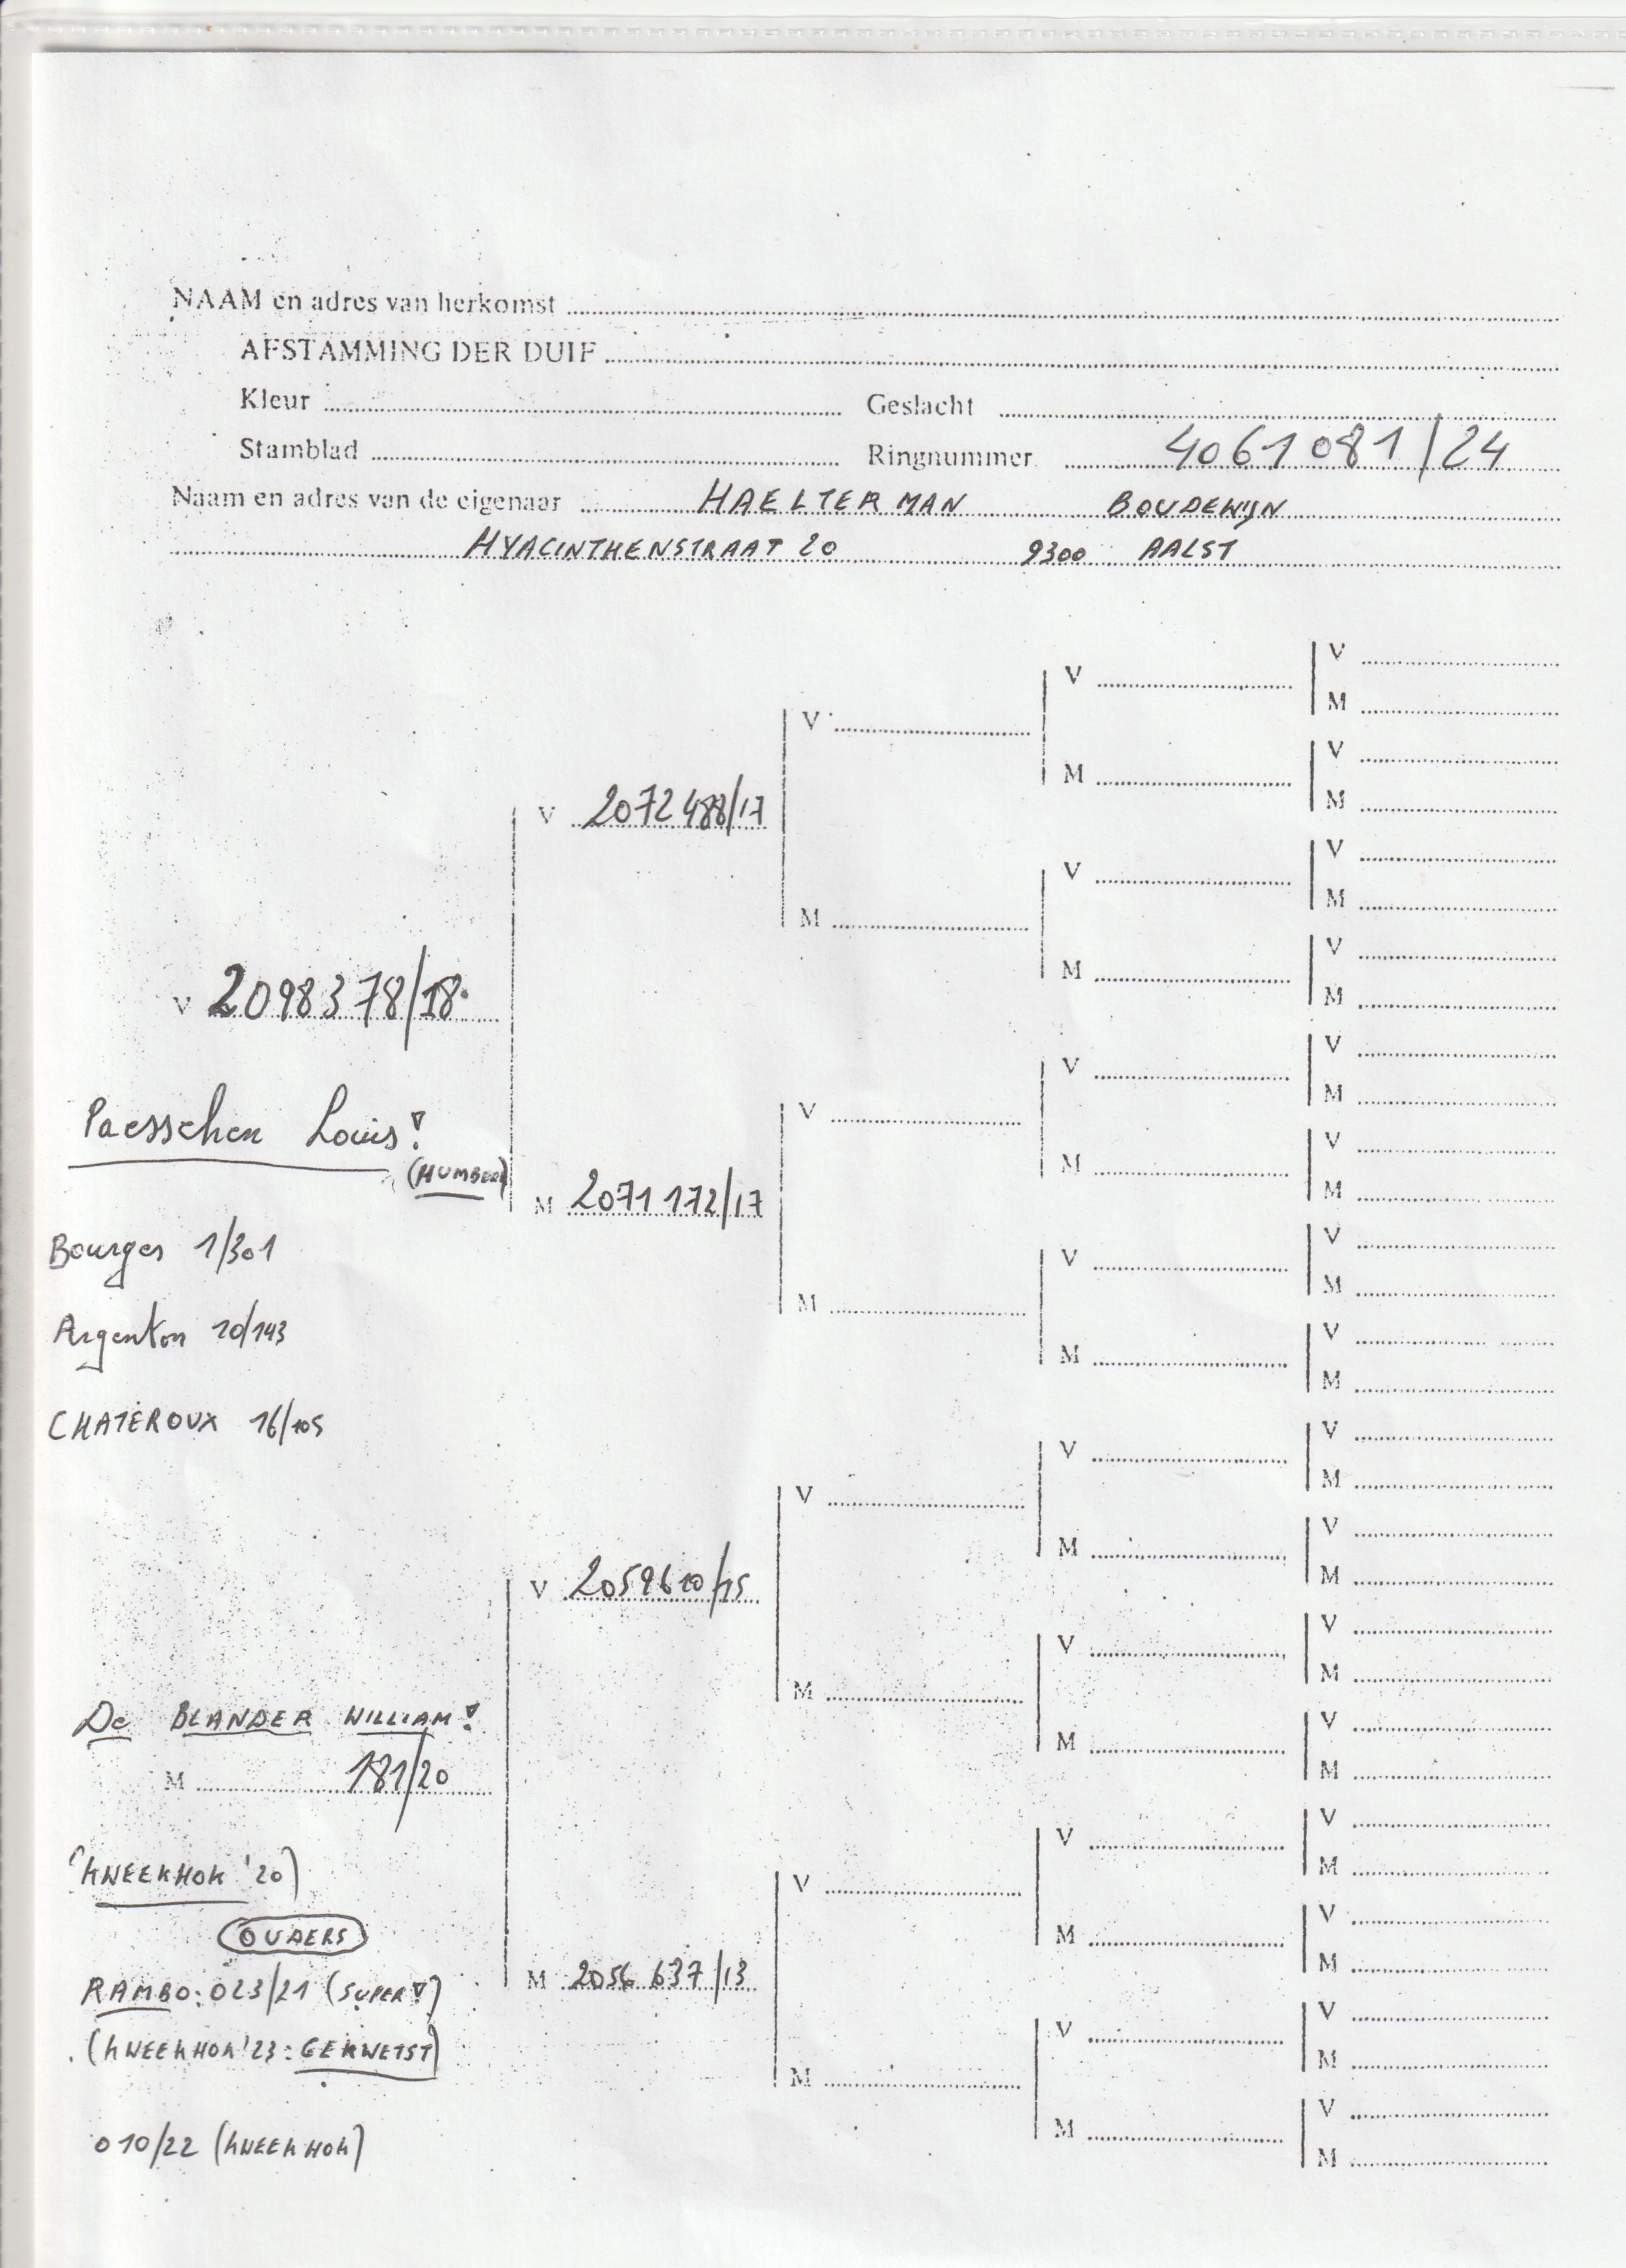 NAAM en adres van herkomst
AFSTAMMING DER DUIF
Kleur Geslacht
Stamblad Ringnummer 4061081/24
Naam en adres van de eigenaar HAELTERMAN BOUDEWIJN
HYACINTHENSTRAAT 20 9300 AALST
V
V
M
V
V
M
M
V 2072488/17
V
V
M
M
V
M
M
V 2098378/18
V
V
M
V
Paesschen Louis!
V
M
M
(HUMBEEK)
M 2071172/17
V
V
M
Bourges 1/301
M
V
Argenton 10/143
M
M
CHATEROUX 16/105
V
V
M
V
V
M
M
V 2059610/15
V
V
M
M
De BLANDER WILLIAM!
V
M
M
M 181/20
V
V
M
(KWEEKHOK '20)
V
V
OUDERS
M
M
M 2056637/13
RAMBO: 023/21 (SUPER!)
V
V
M
(KWEEKHOK '23: GEKWETST)
M
V
M
M
010/22 (KWEEKHOK)